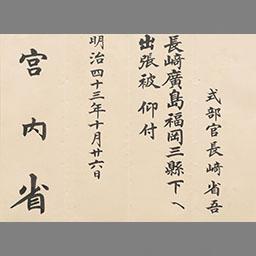 式部官長崎省吾
長崎廣島福岡三縣下ヘ
出張被 仰付
明治四十三年十月廿六日
宮内省